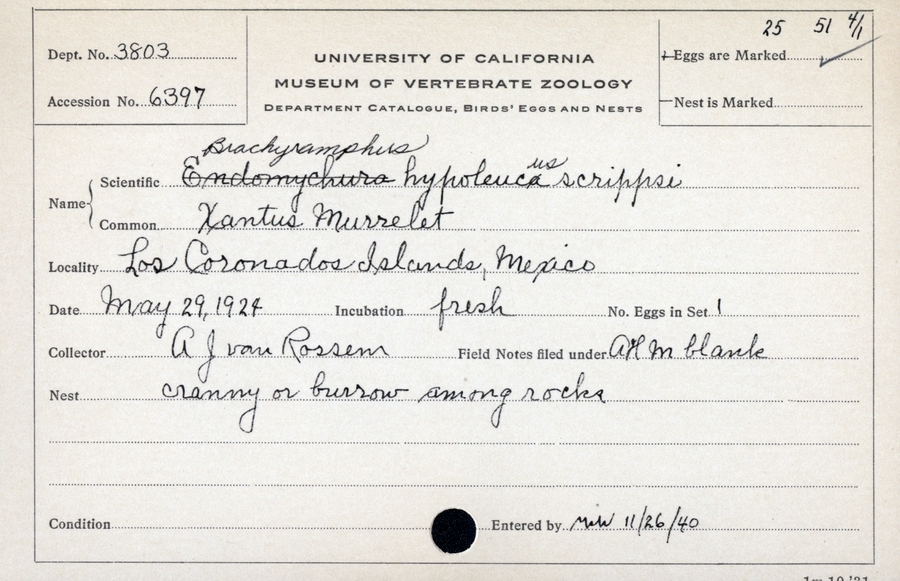 25 51 4/1
Dept. No. 3803
UNIVERSITY OF CALIFORNIA
Eggs are Marked
MUSEUM OF VERTEBRATE ZOOLOGY
Accession No. 6397
DEPARTMENT CATALOGUE, BIRDS' EGGS AND NESTS
Nest is Marked
Brachyramphus
Name Scientific Endomychura hypoleuca us scrippsi
Common Xantus Murrelet
Locality Los Coronados Islands, Mexico
Date May 29, 1924 Incubation fresh No. Eggs in Set 1
Collector A J van Rossem Field Notes filed under AHM blank
Nest cranny or burrow among rocks
Condition Entered by 11/26/40
1m 10 '31